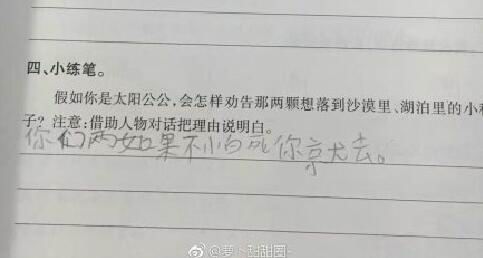 四、小练笔。
假如你是太阳公公,会怎样劝告那两颗想落到沙漠里、湖泊里的小种
子?注意:借助人物对话把理由说明白。
你们两如果不怕死你京尤去。
@萝卜甜甜圈-